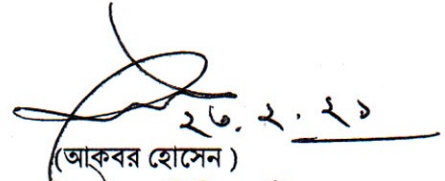 ২৩.২.২১
(আকবর হোসেন)